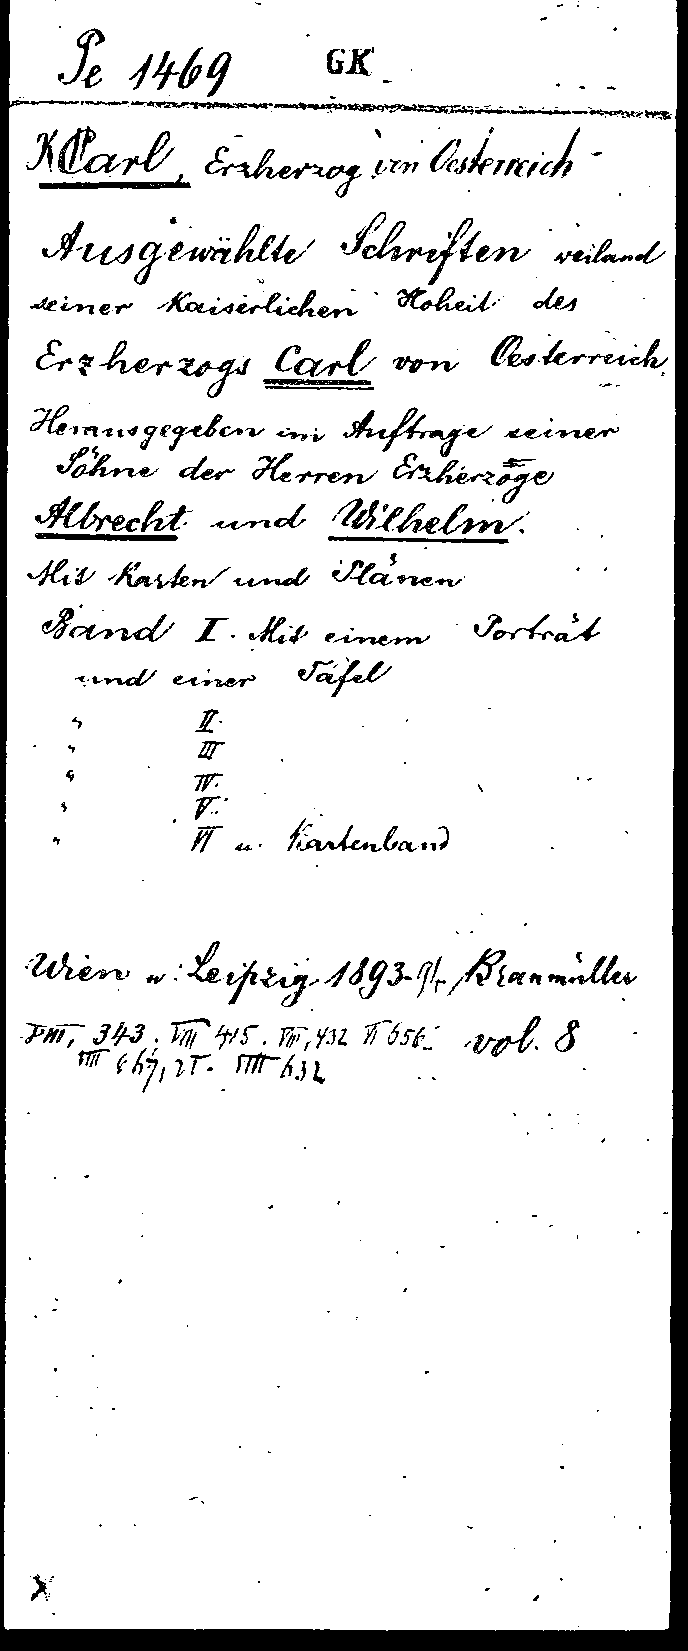 Pe 1469 GK
Carl, Erzherzog von Oesterreich
Ausgewählte Schriften weiland
seiner Kaiserlichen Hoheit des
Erzherzogs Carl von Oesterreich.
Herausgegeben im Auftrage seiner
Söhne der Herren Erzherzöge
Albrecht und Wilhelm.
Mit Karten und Plänen
Band I. Mit einem Porträt
und einer Tafel
" II.
" III
" IV.
" V.
" VI u. Kartenband
Wien u. Leipzig 1893- Braumüller
VIII, 343. VIII 415. VIII, 432 VI 656. vol. 8
VIII 632
X